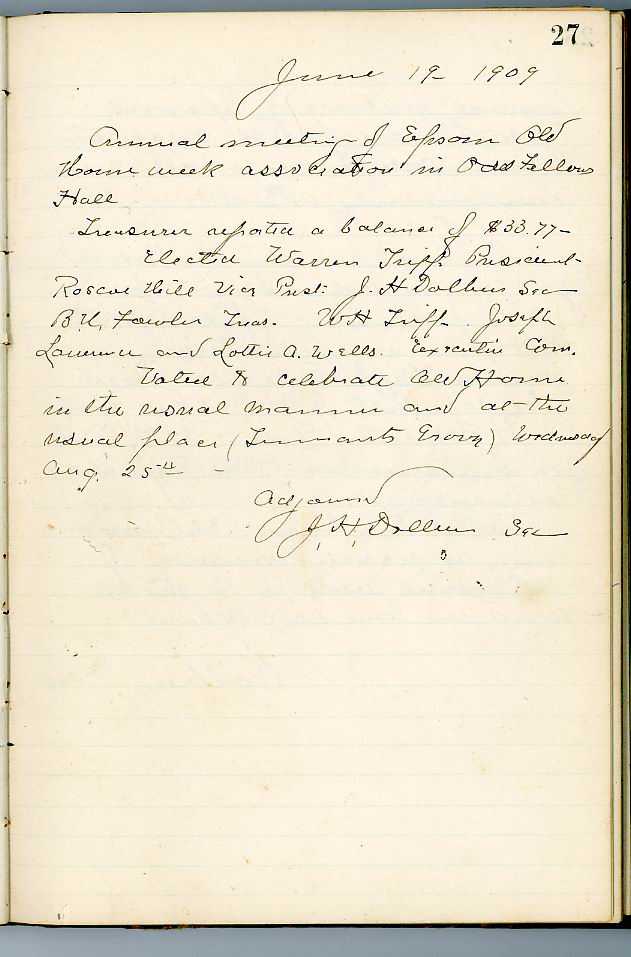 27
June 19 - 1909
Annual meeting of Epsom Old
Home week association in Odd Fellows
Hall
Treasurer reported a balance of $33.77 -
Elected Warren Tripp. President -
Roscoe Hill Vice Prest: J. H Dolbeer Sec
B. M. Towler Treas. W H Tripp. Joseph
Lawrence and Lottie A. Wells. Executive Com.
Voted to celebrate Old Home
in the usual manner and at the
usual place ( Grove) Wednesday
Aug. 25th -
Adjourned
J, H, Dolbeer Sec